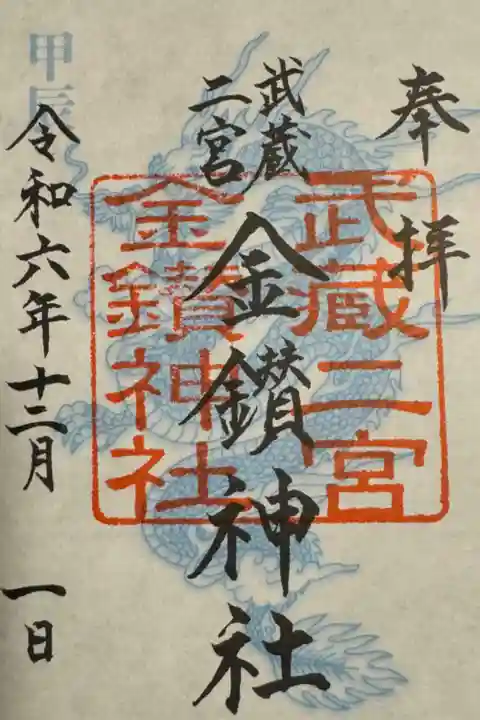 奉拝
武蔵
二宮
金鑚神社
武蔵二宮
金鑚神社
甲辰
令和六年十二月 一日